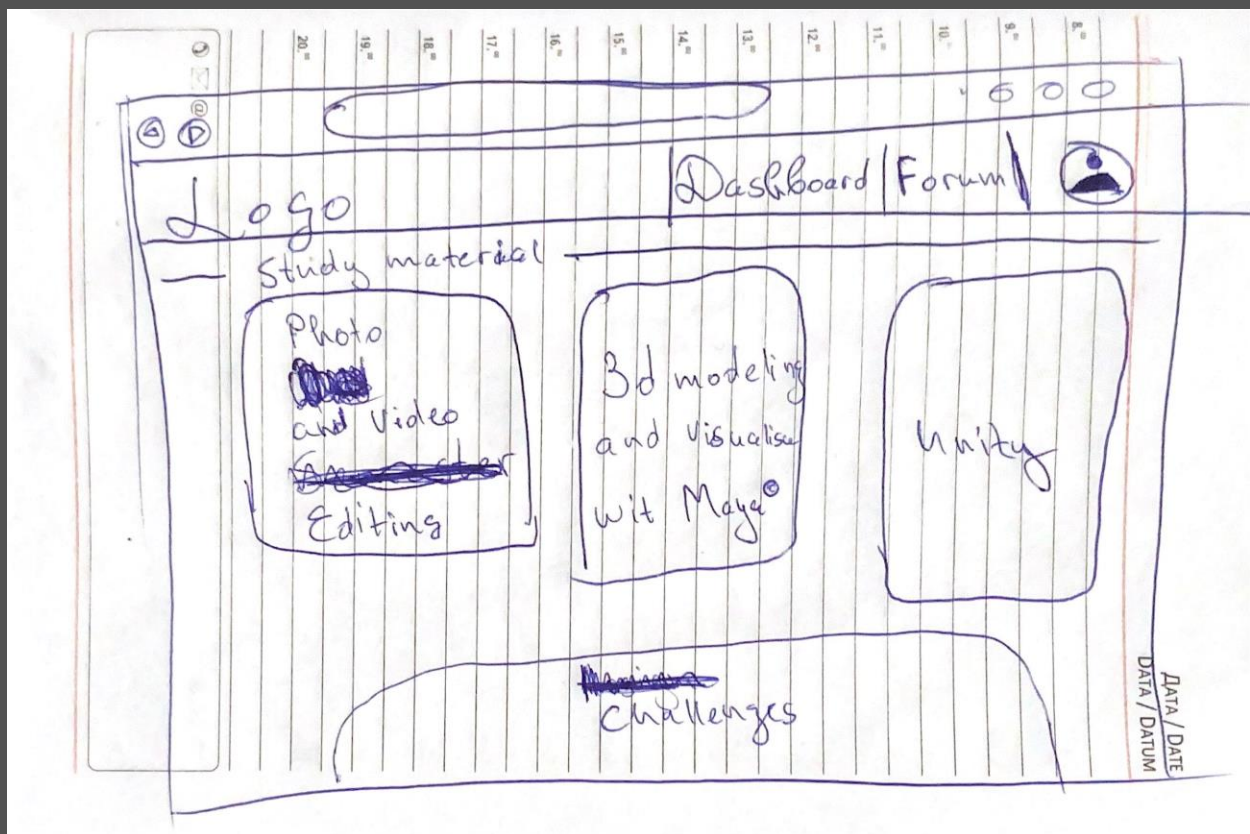 20.00 19.00 18.00 17.00 16.00 15.00 14.00 13.00 12.00 11.00 10.00 9.00 8.00
@
Logo
Dashboard
Forum
Study material
Photo
and Video
Editing
3d modeling
and Visualise
wit Maya©
Unity
Challenges
ДАТА / DATE
DATA / DATUM